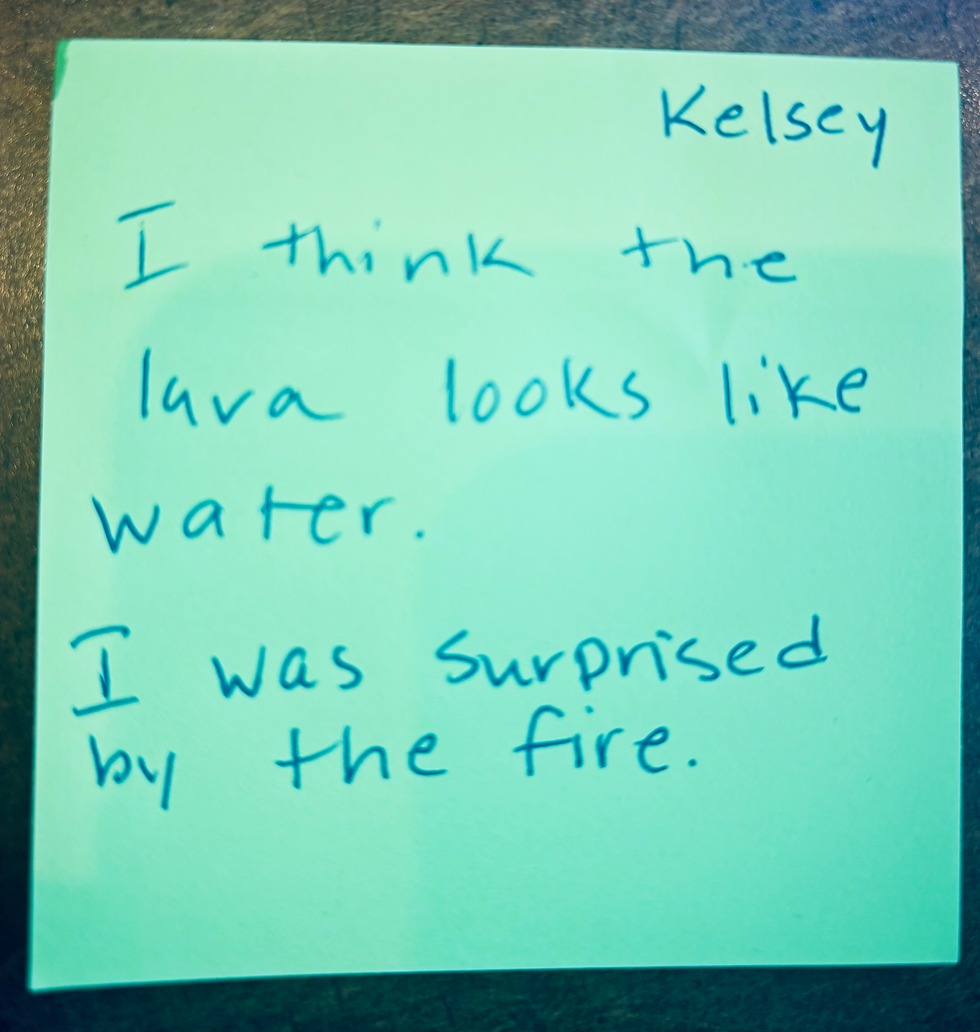 Kelsey
I think the
lava looks like
water.
I was surprised
by the fire.